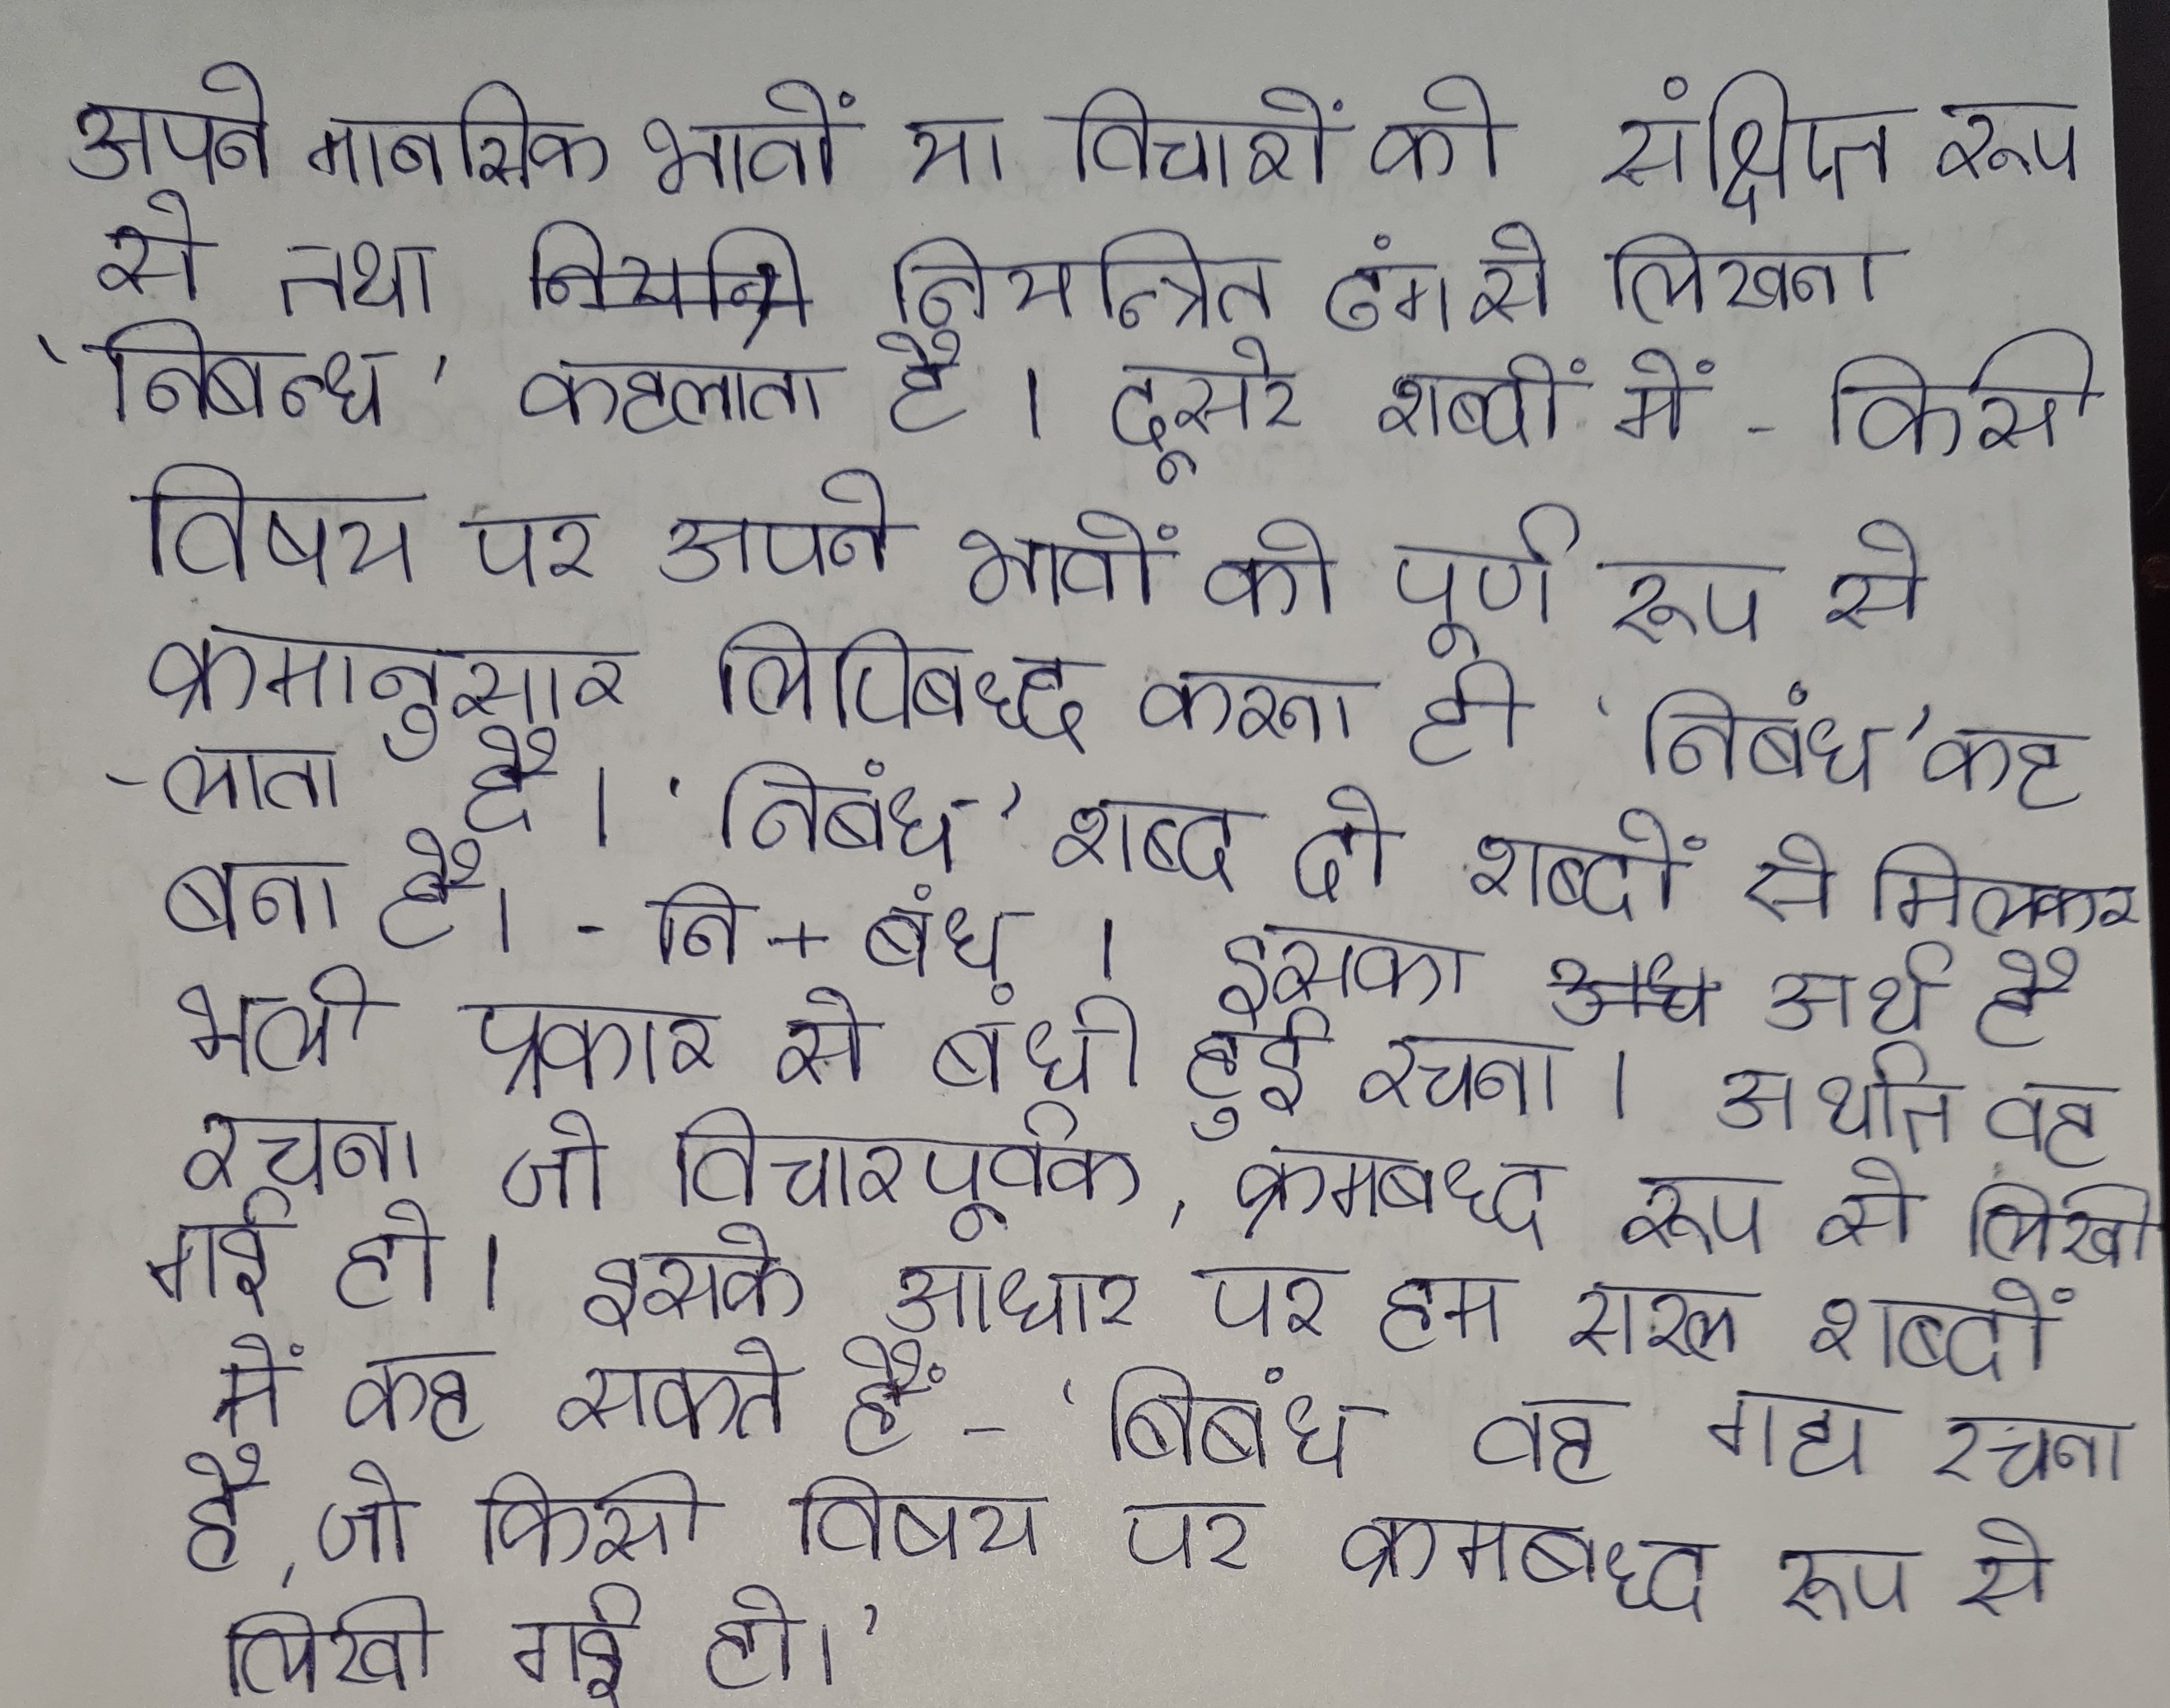 अपने मानसिक भावों या विचारों को संक्षिप्त रूप
से तथा नियन्त्रि नियन्त्रित ढंग से लिखना
'निबन्ध' कहलाता है । दूसरे शब्दों में - किसी
विषय पर अपने भावों को पूर्ण रूप से
क्रमानुसार लिपिबध्द करना ही 'निबंध' कह
-लाता है । 'निबंध' शब्द दो शब्दों से मिलकर
बना है। - नि + बंध । इसका अध अर्थ है
भली प्रकार से बंधी हुई रचना । अर्थात वह
रचना जो विचारपूर्वक, क्रमबध्द रूप से लिखी
गई हो । इसके आधार पर हम सरल शब्दों
में कह सकते हैं - 'निबंध वह गद्य रचना
है, जो किसी विषय पर क्रमबध्द रूप से
लिखी गई हो।'